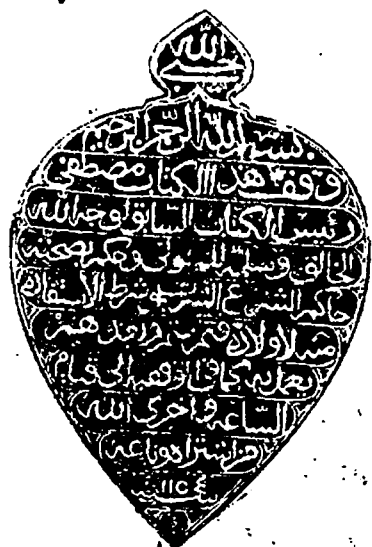 حسبي الله
بسم الله الرحمن الرحيم
وقف هذا الكتاب مصطفى
رئيس الكتاب السابق لوجه الله
الخالق وسلمه للمتولي وحكم بصحته
حاكم الشرع الشريف شرط الاستفادة
منه لاولاده وبعدهم
يعمل به كما في وقفه الى قيام
الساعة واخزى الله
من اشتراه وباعه
سنة ١١٥٤